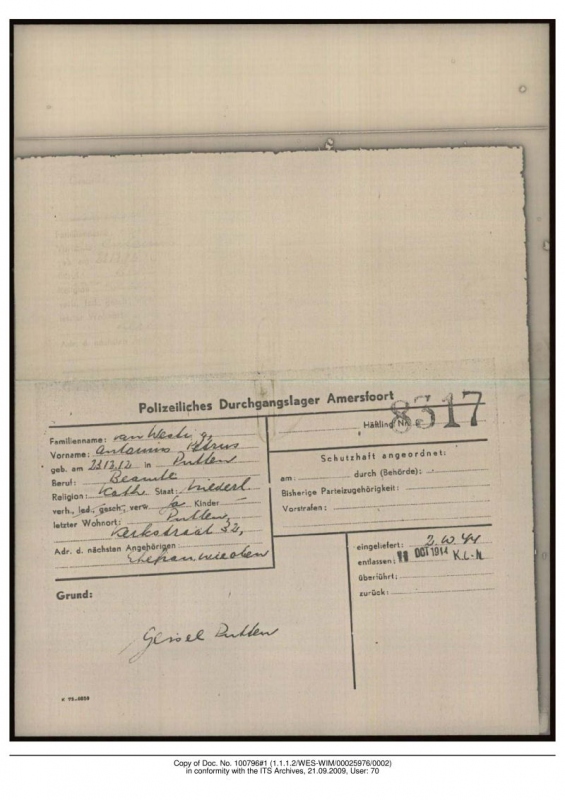 Polizeiliches Durchgangslager Amersfoort
8317
Häftling Nr.
Familienname:
Vorname: Antonius Petrus
geb. am 23.12.12 in Putten
Beruf: Beamte
Religion: Kath. Staat: Niederl
verh., led., gesch., verw. Ja Kinder
letzter Wohnort: Putten,
Kerkstraat 32,
Adr. d. nächsten Angehörigen
Ehefrau wie oben
Schutzhaft angeordnet:
am: durch (Behörde):
Bisherige Parteizugehörigkeit:
Vorstrafen:
eingeliefert: 2.10.44
entlassen: OCT 1944 K.L-N.
überführt:
zurück:
Grund:
Geisel Putten
Copy of Doc. No. 100796#1 (1.1.1.2/WES-WIM/00025976/0002)
in conformity with the ITS Archives, 21.09.2009, User: 70